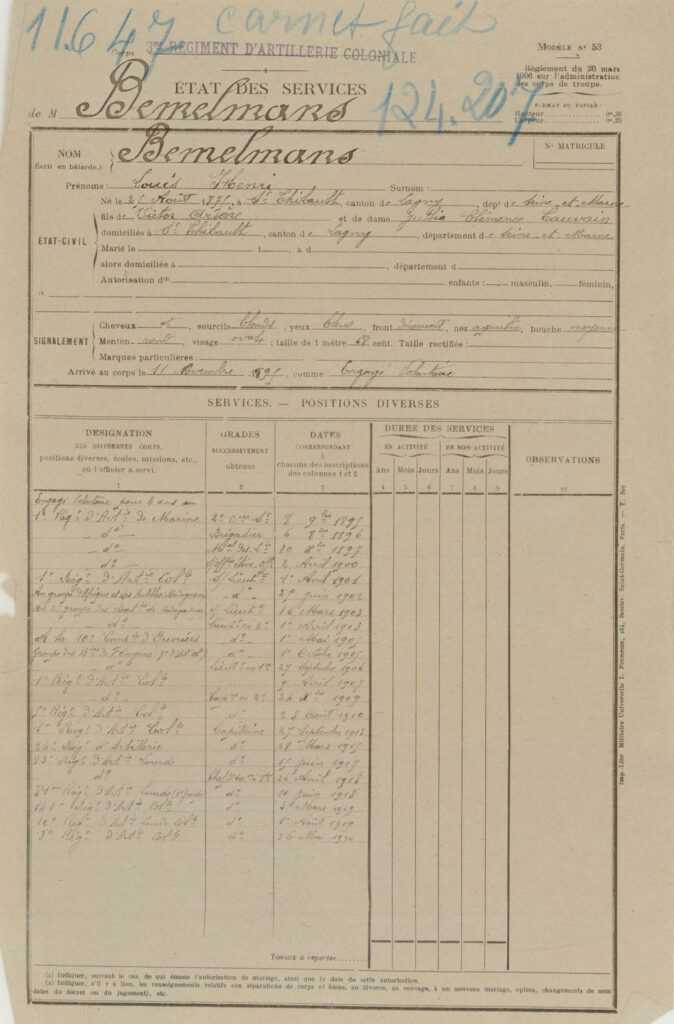 11.647 carnet fait
Corps 3me RÉGIMENT D'ARTILLERIE COLONIALE
MODÈLE N° 53
Règlement du 20 mars
1906 sur l'administration
des corps de troupe.
ÉTAT DES SERVICES
124.207
FORMAT DU PAPIER:
Hauteur 0m,36
Largeur 0m,23
de M Bemelmans
NOM Bemelmans
(Écrit en bâtarde.)
N° MATRICULE
Prénoms: Louis Henri Surnom:
Né le 21 Août 1875, à St Thibault, canton de Lagny, dépt de Seine et Marne
fils de Victor Arsène et de dame Julia Clémence Cauvain
ÉTAT-CIVIL
domiciliés à St Thibault, canton de Lagny, département de Seine et Marne
Marié le 1 , à d
alors domiciliée à , département d
Autorisation d enfants: masculin, féminin,
SIGNALEMENT
Cheveux et, sourcils blonds, yeux bleus, front découvert, nez aquilin, bouche moyenne
Menton rond visage ovale; taille de 1 mètre 68 cent. Taille rectifiée:
Marques particulières:
Arrivé au corps le 11 Novembre 1895, comme Engagé Volontaire
SERVICES. — POSITIONS DIVERSES
DÉSIGNATION
DES DIFFÉRENTS CORPS,
positions diverses, écoles, missions, etc.,
où l'officier a servi.
GRADES
SUCCESSIVEMENT
obtenus
DATES
CORRESPONDANT
à
chacune des inscriptions
des colonnes 1 et 2
DURÉE DES SERVICES
EN ACTIVITÉ
EN NON-ACTIVITÉ
Ans Mois Jours Ans Mois Jours
OBSERVATIONS
1 2 3 4 5 6 7 8 9 10
Engagé Volontaire pour 3 ans au
1er Régt d'Artie de Marine 2e Cier St 8 9bre 1895
do Brigadier 6 8 1896
do Mal des Lis 30 Xbre 1897
do 2 Avril 1900
1er Régt d'Artie Colle S/Lieutt 1er Avril 1901
do 25 Juin 1902
S/Lieutt 16 Mars 1903
do Lieutt en 2e 1er Avril 1903
A la 10e Comie d'Ouvriers do 1er Mai 1905
do 1er Octobre 1905
do Lieutt en 1er 27 Septembre 1906
1er Régt d'Artie Colle 9 Avril 1907
do Capne en 2e 24 Xbre 1909
5e Régt d'Artie Colle do 28 Août 1910
1er Régt d'Artie Colle Capitaine 27 Septembre 1913
24e Régt d'Artillerie do 28 Mars 1915
83e Régt d'Artie Lourde do 15 Juin 1917
do 26 Avril 1918
do 10 Juin 1918
141e Régt d'Artie Colle do 3 Mars 1919
do 1er Août 1919
3e Régt d'Artie Colle do 26 Mai 1920
TOTAUX à reporter
(1) Indiquer, suivant le cas, de qui émane l'autorisation de mariage, ainsi que la date de cette autorisation.
(2) Indiquer, s'il y a lieu, les renseignements relatifs aux séparations de corps et biens, au divorce, au veuvage, à un nouveau mariage, option, changements de nom
(dates du décret ou du jugement), etc.